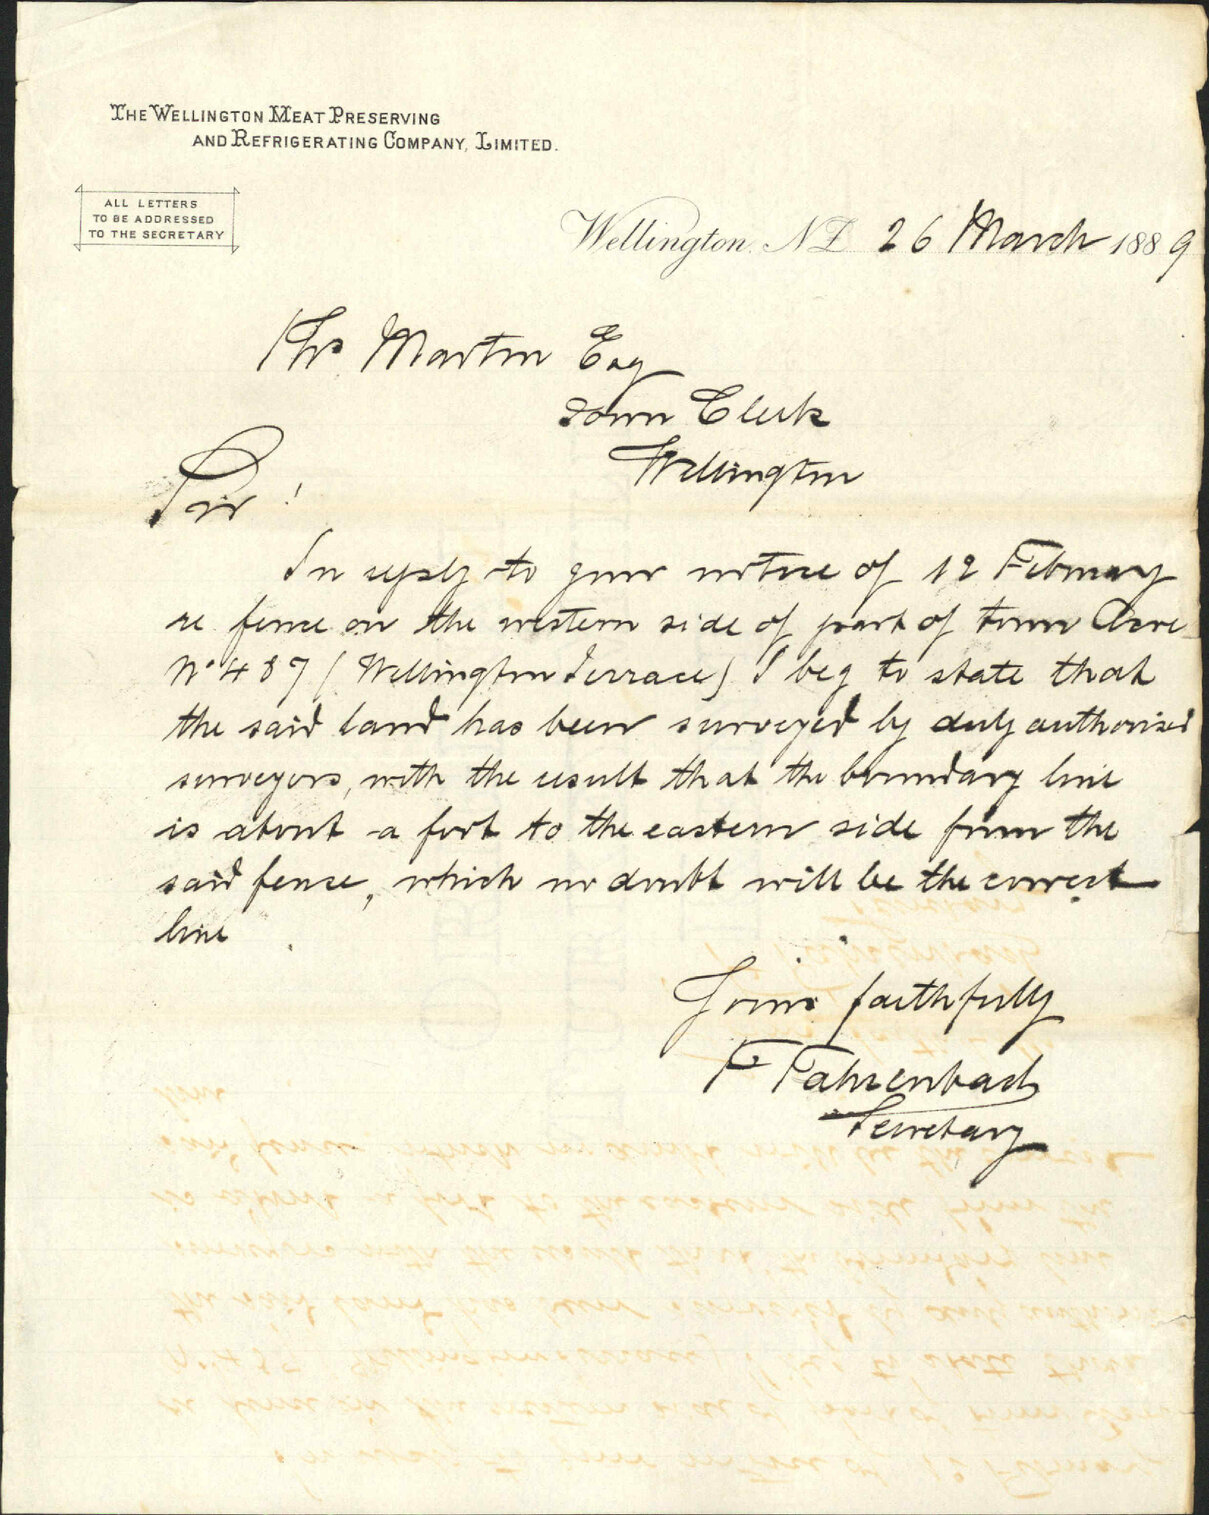 THE WELLINGTON MEAT PRESERVING
AND REFRIGERATING COMPANY, LIMITED.
ALL LETTERS
TO BE ADDRESSED
TO THE SECRETARY
Wellington, NZ 26 March 1889
Martin Esq
Town Clerk
Wellington
Sir!
In reply to your notice of 12 February
re fence on the western side of part of town Acre
No 487 (Wellington Terrace) I beg to state that
the said land has been surveyed by duly authorised
surveyors, with the result that the boundary line
is about a foot to the eastern side from the
said fence, which no doubt will be the correct
line.
Yours faithfully
F Fahrenbach
Secretary